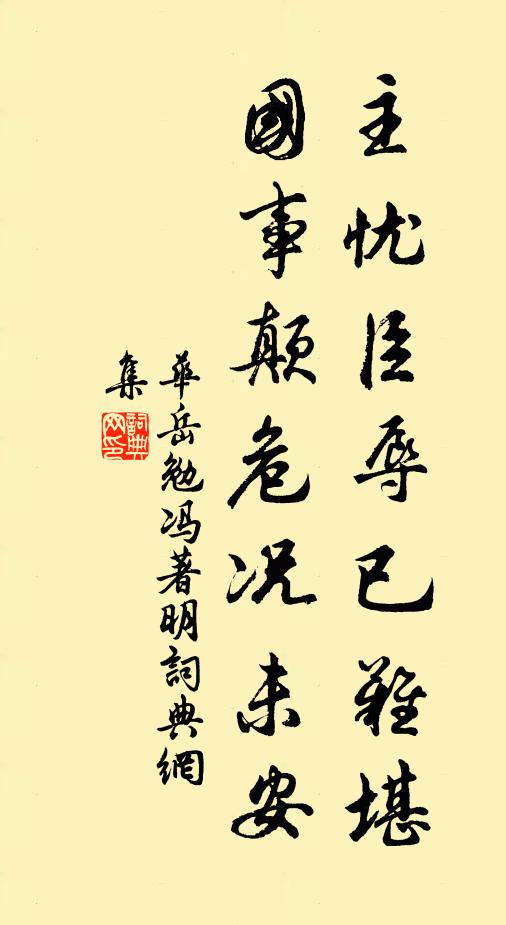 主忧臣辱已難堪
國事颠危况未安
華岳勉冯著明詞典網
集
詞典
网印